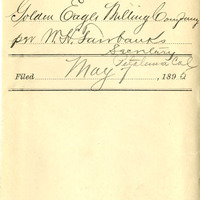 Golden Eagle Milling Company
per W. H. Fairbanks
Secretary
Petaluma Cal
Filed May 7, 189